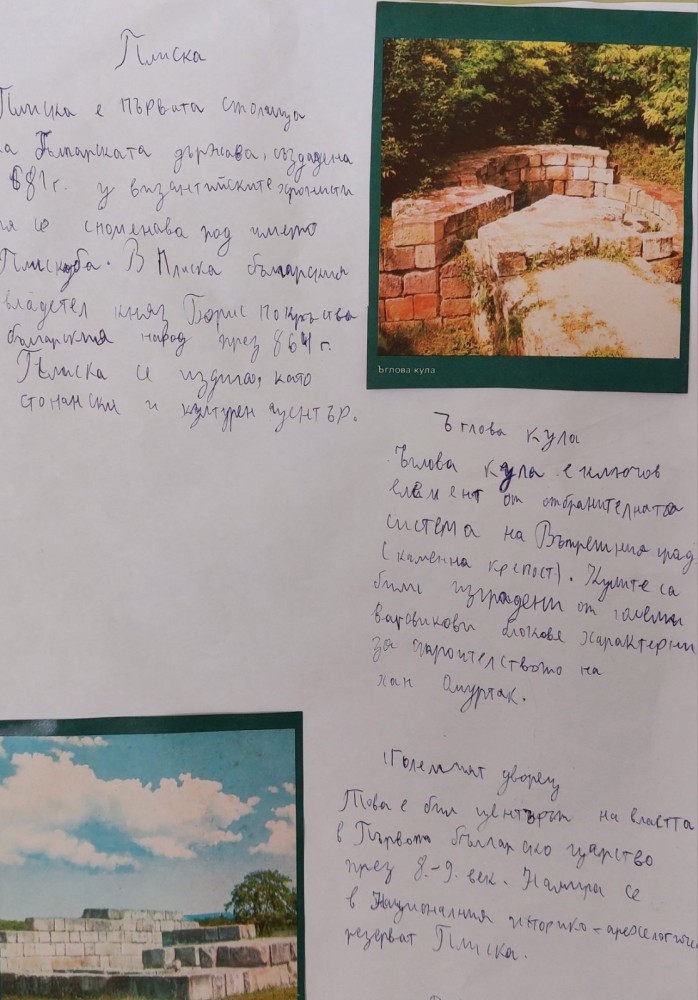 Плиска
Плиска е първата столица
на Българската държава, създадена
681 г. у византийските хронисти
тя се споменава под името
Плискуба. В Плиска българския
владетел княз Борис покръства
българския народ през 864 г.
Плиска се издига, като
стопански и културен център.
Ъглова кула
Ъглова кула
Ъглова кула е ключов
елемент от отбранителната
система на Вътрешния град
(каменна крепост). Кулите са
били изградени от големи
варовикови блокове характерни
за строителството на
хан Омуртаг.
Големият дворец
Това е бил центърът на властта
в Първото българско царство
през 8.-9. век. Намира се
в Националния историко-археологически
резерват Плиска.